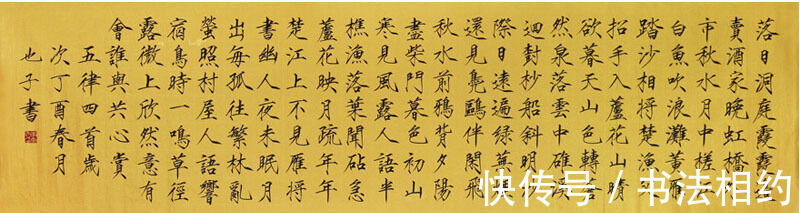 落日洞庭霞霞
賣酒家晚虹橋
市秋水月中槎
白魚吹浪灘黃雁
踏沙相將楚漁
招手入蘆花山晴
欲暮天山色轉
然泉落雲中碓溪
迴封杪船斜明
際日遠遍綠蕪
還見鳧鷗伴閑飛
秋水前鴉背夕陽
盡柴門暮色初山
寒見風露人語半
樵漁落葉聞砧急
蘆花映月疏年年
楚江上不見雁將
書幽人夜未眠月
出每孤往繁林亂
螢照村屋人語響
宿鳥時一鳴草徑
露微上欣然意有
會誰與共心賞
五律四首歲
次丁酉春月
也子書
快传号 / 书法相约